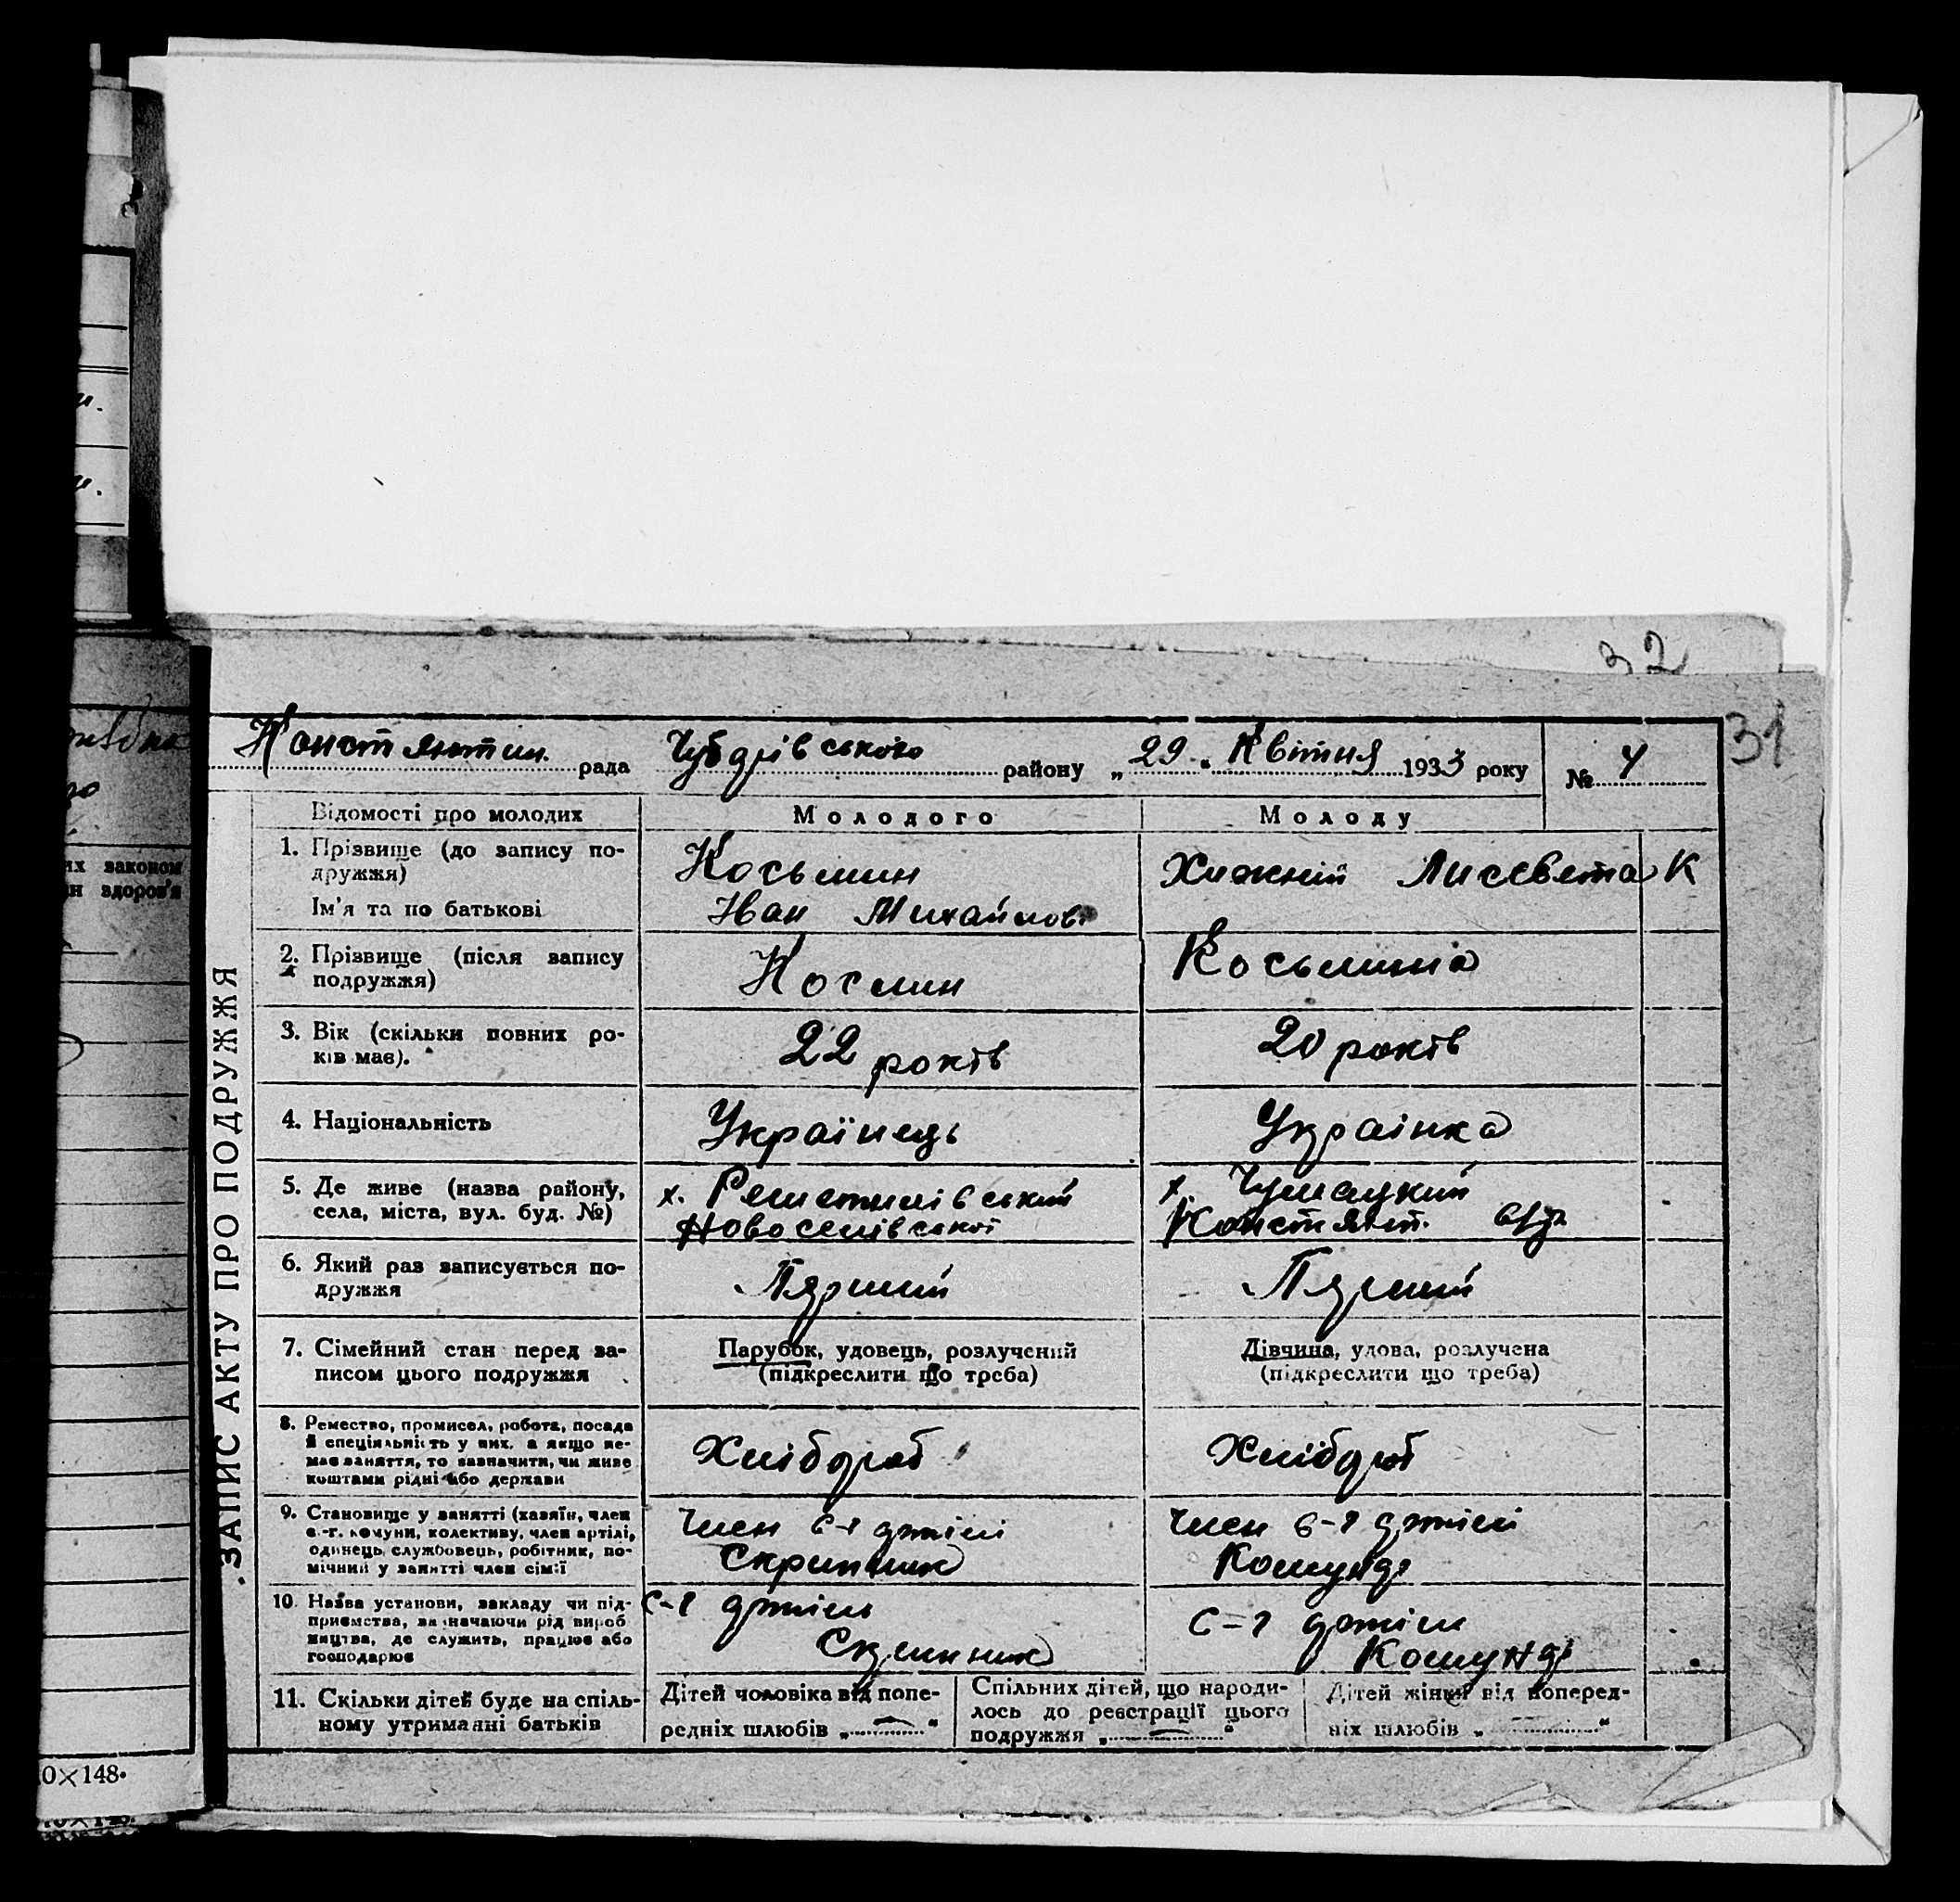 32
31
Констянтин. рада Чубарівського району „29„ Квітня 1933 року № 4
ЗАПИС АКТУ ПРО ПОДРУЖЖЯ
Відомості про молодих
Молодого
Молоду
1. Прізвище (до запису по-
дружжя)
Ім'я та по батькові
Косьмин
Іван Михайлов.
Хижній Лисевета К
2. Прізвище (після запису
подружжя)
Космин
Косьмина
3. Вік (скільки повних ро-
ків має).
22 років
20 років
4. Національність
Українець
Українка
5. Де живе (назва району,
села, міста, вул. буд. №)
х. Решетилівський
Новоселівської
х. Чумацкий
Констянт.
6. Який раз записується по-
дружжя
Перший
Перший
7. Сімейний стан перед за-
писом цього подружжя
Парубок, удовець, розлучений
(підкреслити що треба)
Дівчина, удова, розлучена
(підкреслити що треба)
8. Ремество, промисел, робота, посада
й спеціяльність у них, а якщо не-
має заняття, то зазначити, чи живе
коштами рідні або держави
Хлібороб
Хлібороб
9. Становище у занятті (хазяїн, член
с.-г. комуни, колективу, член артілі,
одинець, службовець, робітник, по-
мічний у занятті член сім'ї
Член с-г артілі
Скрипник
Член с-г артілі
Комунар
10. Назва установи, закладу чи під-
приємства, зазначаючи рід вироб
ництва, де служить, працює або
господарює
с-г артіль
Скрипник
с=г артіль
Комунар
11. Скільки дітей буде на спіль-
ному утриманні батьків
Дітей чоловіка від попе-
редніх шлюбів „ — “
Спільних дітей, що народи-
лось до реєстрації цього
подружжя „ — “
Дітей жінки від поперед-
ніх шлюбів „ — “
их законом
ан здоров'я
0×148•